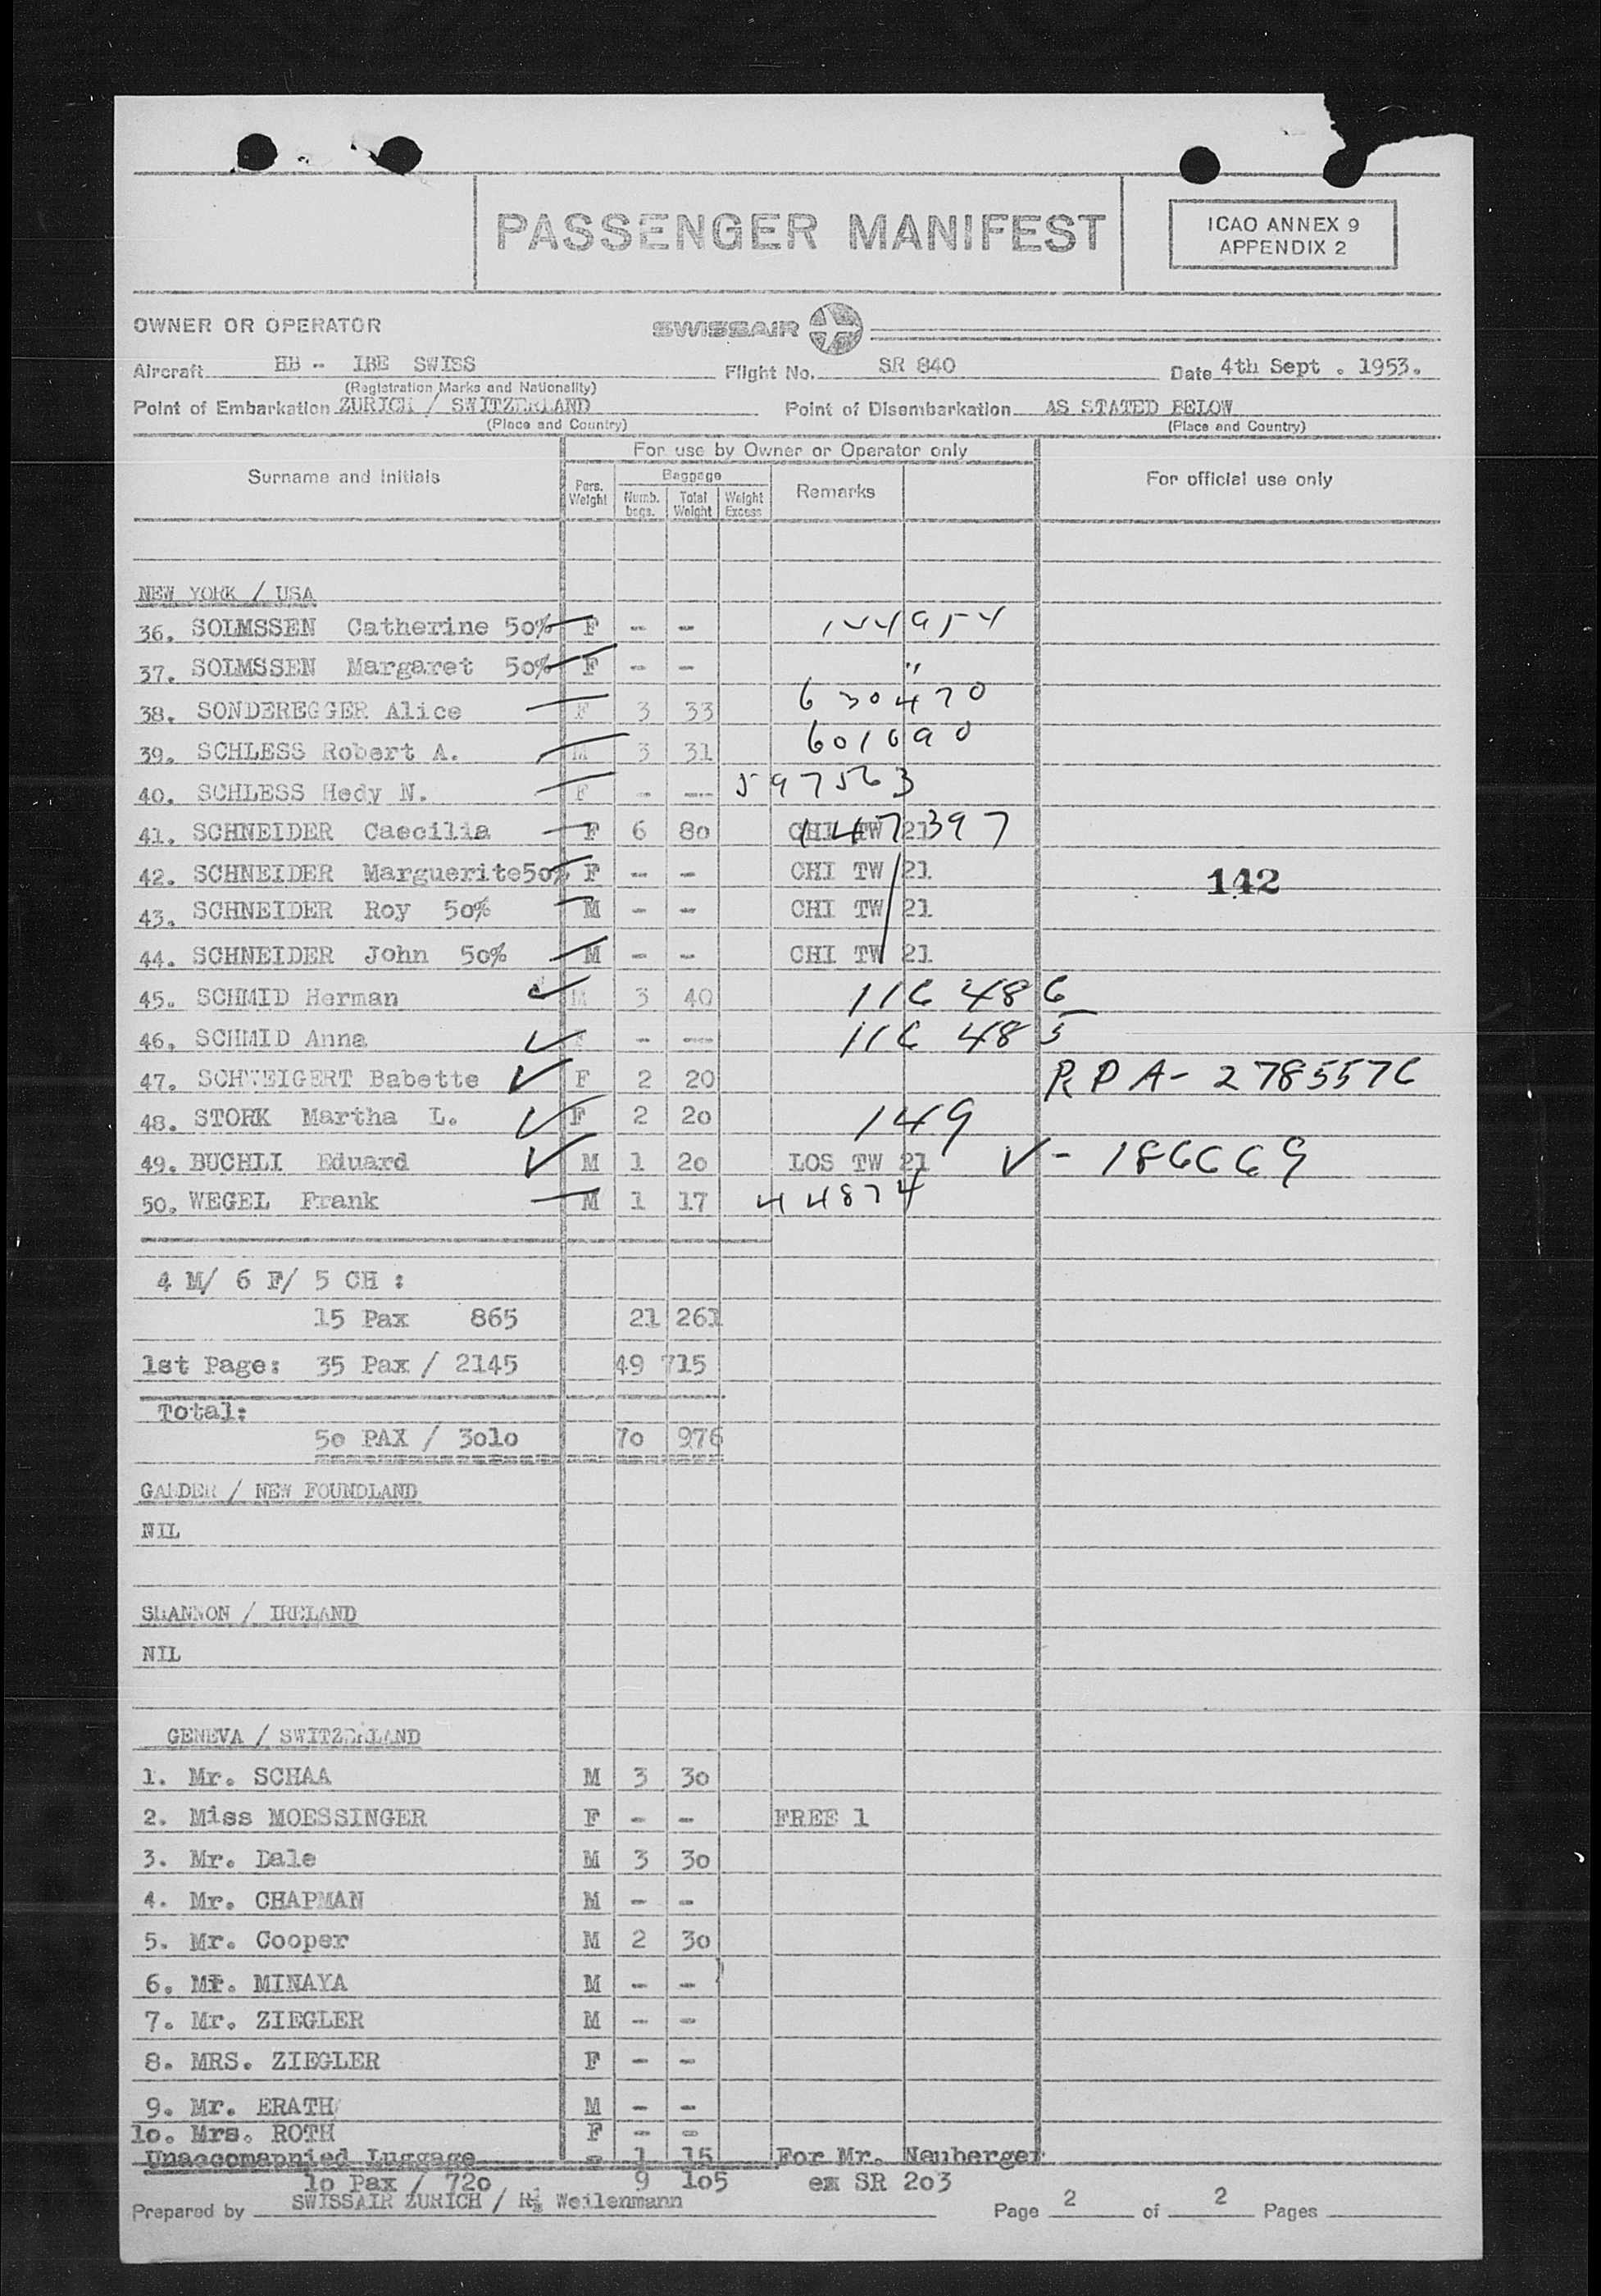 PASSENGER MANIFEST
ICAO ANNEX 9
APPENDIX 2
OWNER OR OPERATOR SWISSAIR
Aircraft HB - IBE SWISS Flight No. SR 840 Date 4th Sept . 1953.
(Registration Marks and Nationality)
Point of Embarkation ZURICH / SWITZERLAND Point of Disembarkation AS STATED BELOW
(Place and Country) (Place and Country)
For use by Owner or Operator only
Surname and Initials Pers. Weight Baggage Numb. bags. Total Weight Weight Excess Remarks For official use only
NEW YORK / USA
36. SOLMSSEN Catherine 50% F -- --
37. SOLMSSEN Margaret 50% F -- -- "
38. SONDEREGGER Alice F 3 33 630470
39. SCHLESS Robert A. M 3 31 601090
40. SCHLESS Hedy N. F -- --- 597563
41. SCHNEIDER Caecilia F 6 80 CHI TW 21 147397
42. SCHNEIDER Marguerite50% F -- -- CHI TW 21
142
43. SCHNEIDER Roy 50% M -- -- CHI TW 21
44. SCHNEIDER John 50% M -- -- CHI TW 21
45. SCHMID Herman M 3 40 116 486
46. SCHMID Anna F -- --- 116 485
47. SCHWEIGERT Babette F 2 20 RPA- 2785576
48. STORK Martha L. F 2 2o 149
49. BUCHLI Eduard M 1 2o LOS TW 21 ✓ - 186669
50. WEGEL Frank M 1 17 44874
4 M/ 6 F/ 5 CH :
15 Pax 865 21 261
1st Page: 35 Pax / 2145 49 715
Total:
5o PAX / 3o1o 7o 976
GANDER / NEW FOUNDLAND
NIL
SHANNON / IRELAND
NIL
GENEVA / SWITZERLAND
1. Mr. SCHAA M 3 3o
2. Miss MOESSINGER F -- -- FREE 1
3. Mr. Dale M 3 3o
4. Mr. CHAPMAN M -- --
5. Mr. Cooper M 2 3o
6. Mr. MINAYA M -- --
7. Mr. ZIEGLER M -- --
8. MRS. ZIEGLER F -- --
9. Mr. ERATH M -- --
1o. Mrs. ROTH F -- --
Unaccomapnied Luggage - 1 15 For Mr. Neuberger
1o Pax / 72o 9 1o5 ex SR 2o3
Prepared by SWISSAIR ZURICH / Weilenmann Page 2 of 2 Pages